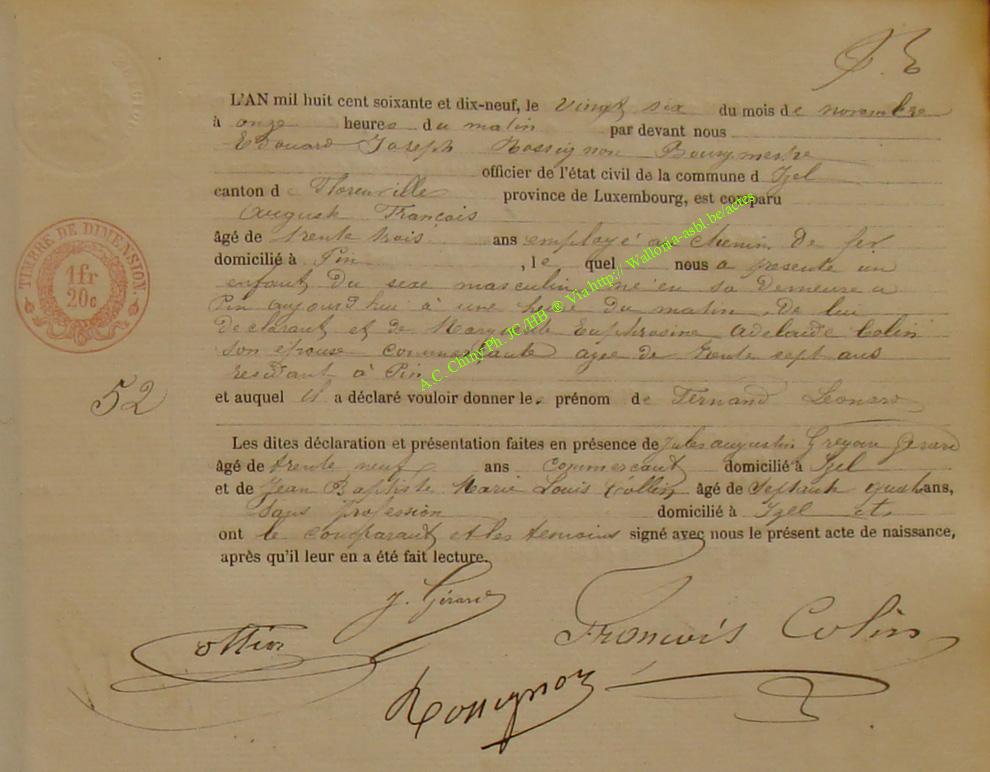 L'AN mil huit cent soixante et dix-neuf, le vingt six du mois de novembre
à onze heures du matin par devant nous
Edouard Joseph Rossignon Bourgmestre
officier de l'état civil de la commune d Izel
canton de Florenville province de Luxembourg, est comparu
Auguste Francois
âgé de trente trois ans employé au chemin de fer
domicilié à Pin , le quel nous a presenté un
enfant du sexe masculin né en sa demeure a
Pin aujourd'hui à une heure du matin, de lui
declarant et de Euphrosine Adelaïde Colin
son épouse commercante agée de trente sept ans
residant à Pin
52
et auquel il a déclaré vouloir donner le. prénom de Fernand Leonard
Les dites déclaration et présentation faites en présence de Jules augustin Gérard
âgé de trente neuf ans commercant domicilié à Izel
et de Jean Baptiste Marie Louis Collin âgé de septante quatre ans,
sans profession domicilié à Izel et
ont le comparant et les temoins signé avec nous le présent acte de naissance,
après qu'il leur en a été fait lecture.
J. Gérard
Francois Colin
Rossignon
TIMBRE DE DIMENSION
1fr
20c
A.C. Chiny Ph. JC /HB ® Via http:// Wallonia-asbl.be/actes